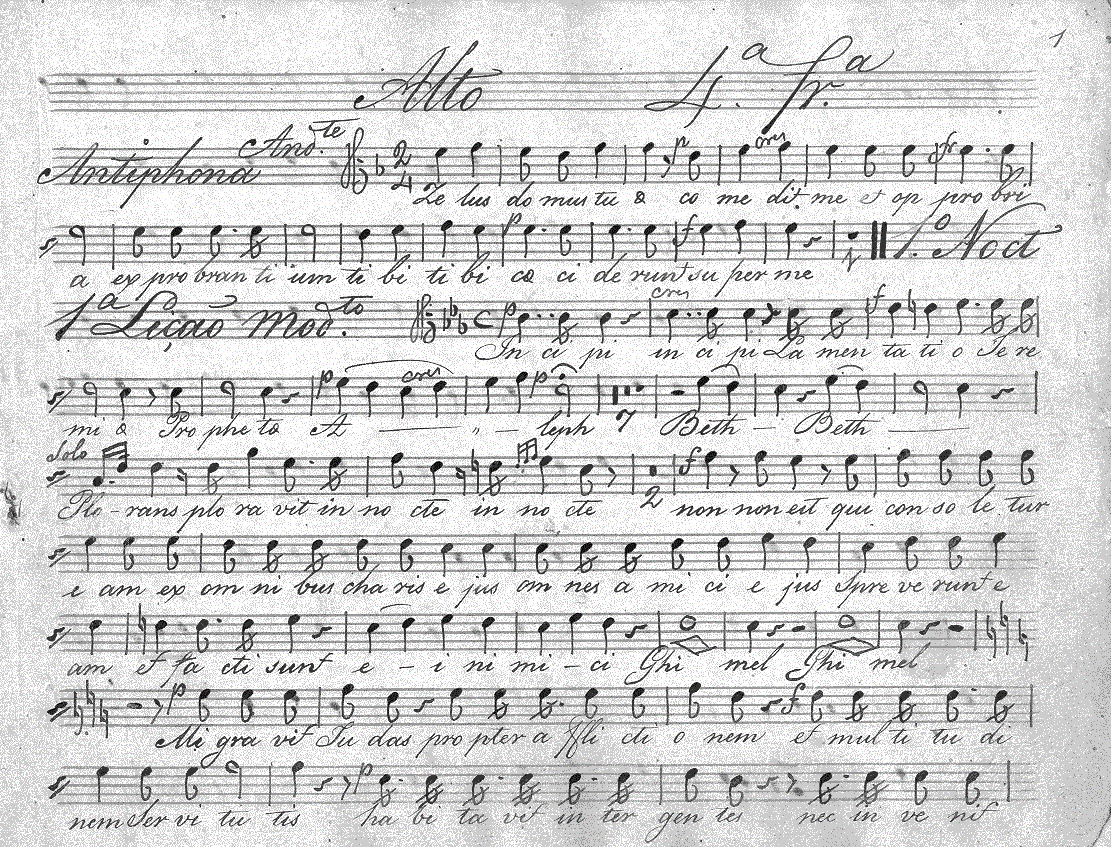 1
Alto 4.ª fr.ª
Antiphona And.te p cres
Ze lus do mus tu a co me dit me et op pro bri
p f 1.º Noct
a ex pro bran ti um ti bi ti bi ce ci de runt su per me
1.ª Lição Mod.to p cres f
In ci pi in ci pi La men ta ti o Je re
p cres p
mi a Pro phe ta A - - leph 7 Beth - Beth
Solo f
Plo - rans plo ra vit in no cte in no cte 2 non non est qui con so le tur
e am ex om ni bus cha ris e jus om nes a mi ci e jus Spre ve runt e
am et fa cti sunt e - i ni mi - ci Ghi mel Ghi mel
p f
Mi gra vit Ju das pro pter a ffli cti o nem et mul ti tu di
p
nem Ser vi tu tis ha bi ta vit in ter gen tes nec in ve nit